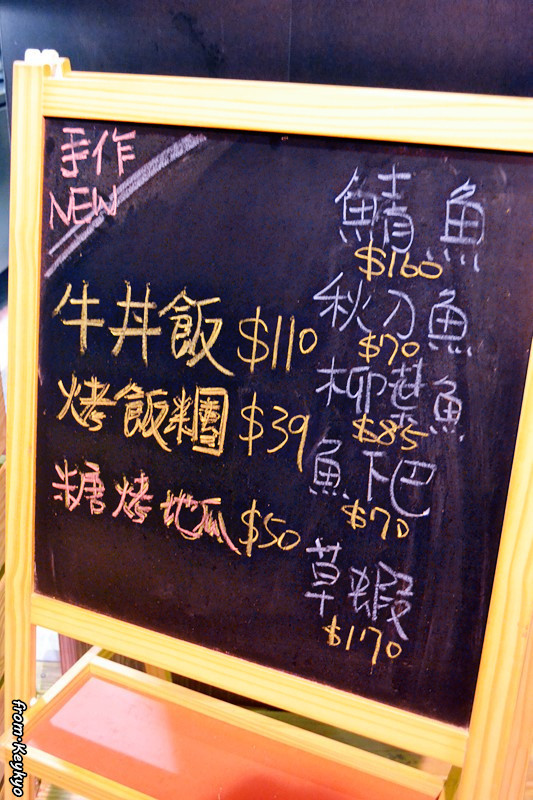 手作
NEW
牛丼飯 $110
烤飯糰 $39
糖烤地瓜 $50
鯖魚
$160
秋刀魚
$70
柳葉魚
$85
魚下巴
$70
草蝦
$170
from-Keykyo